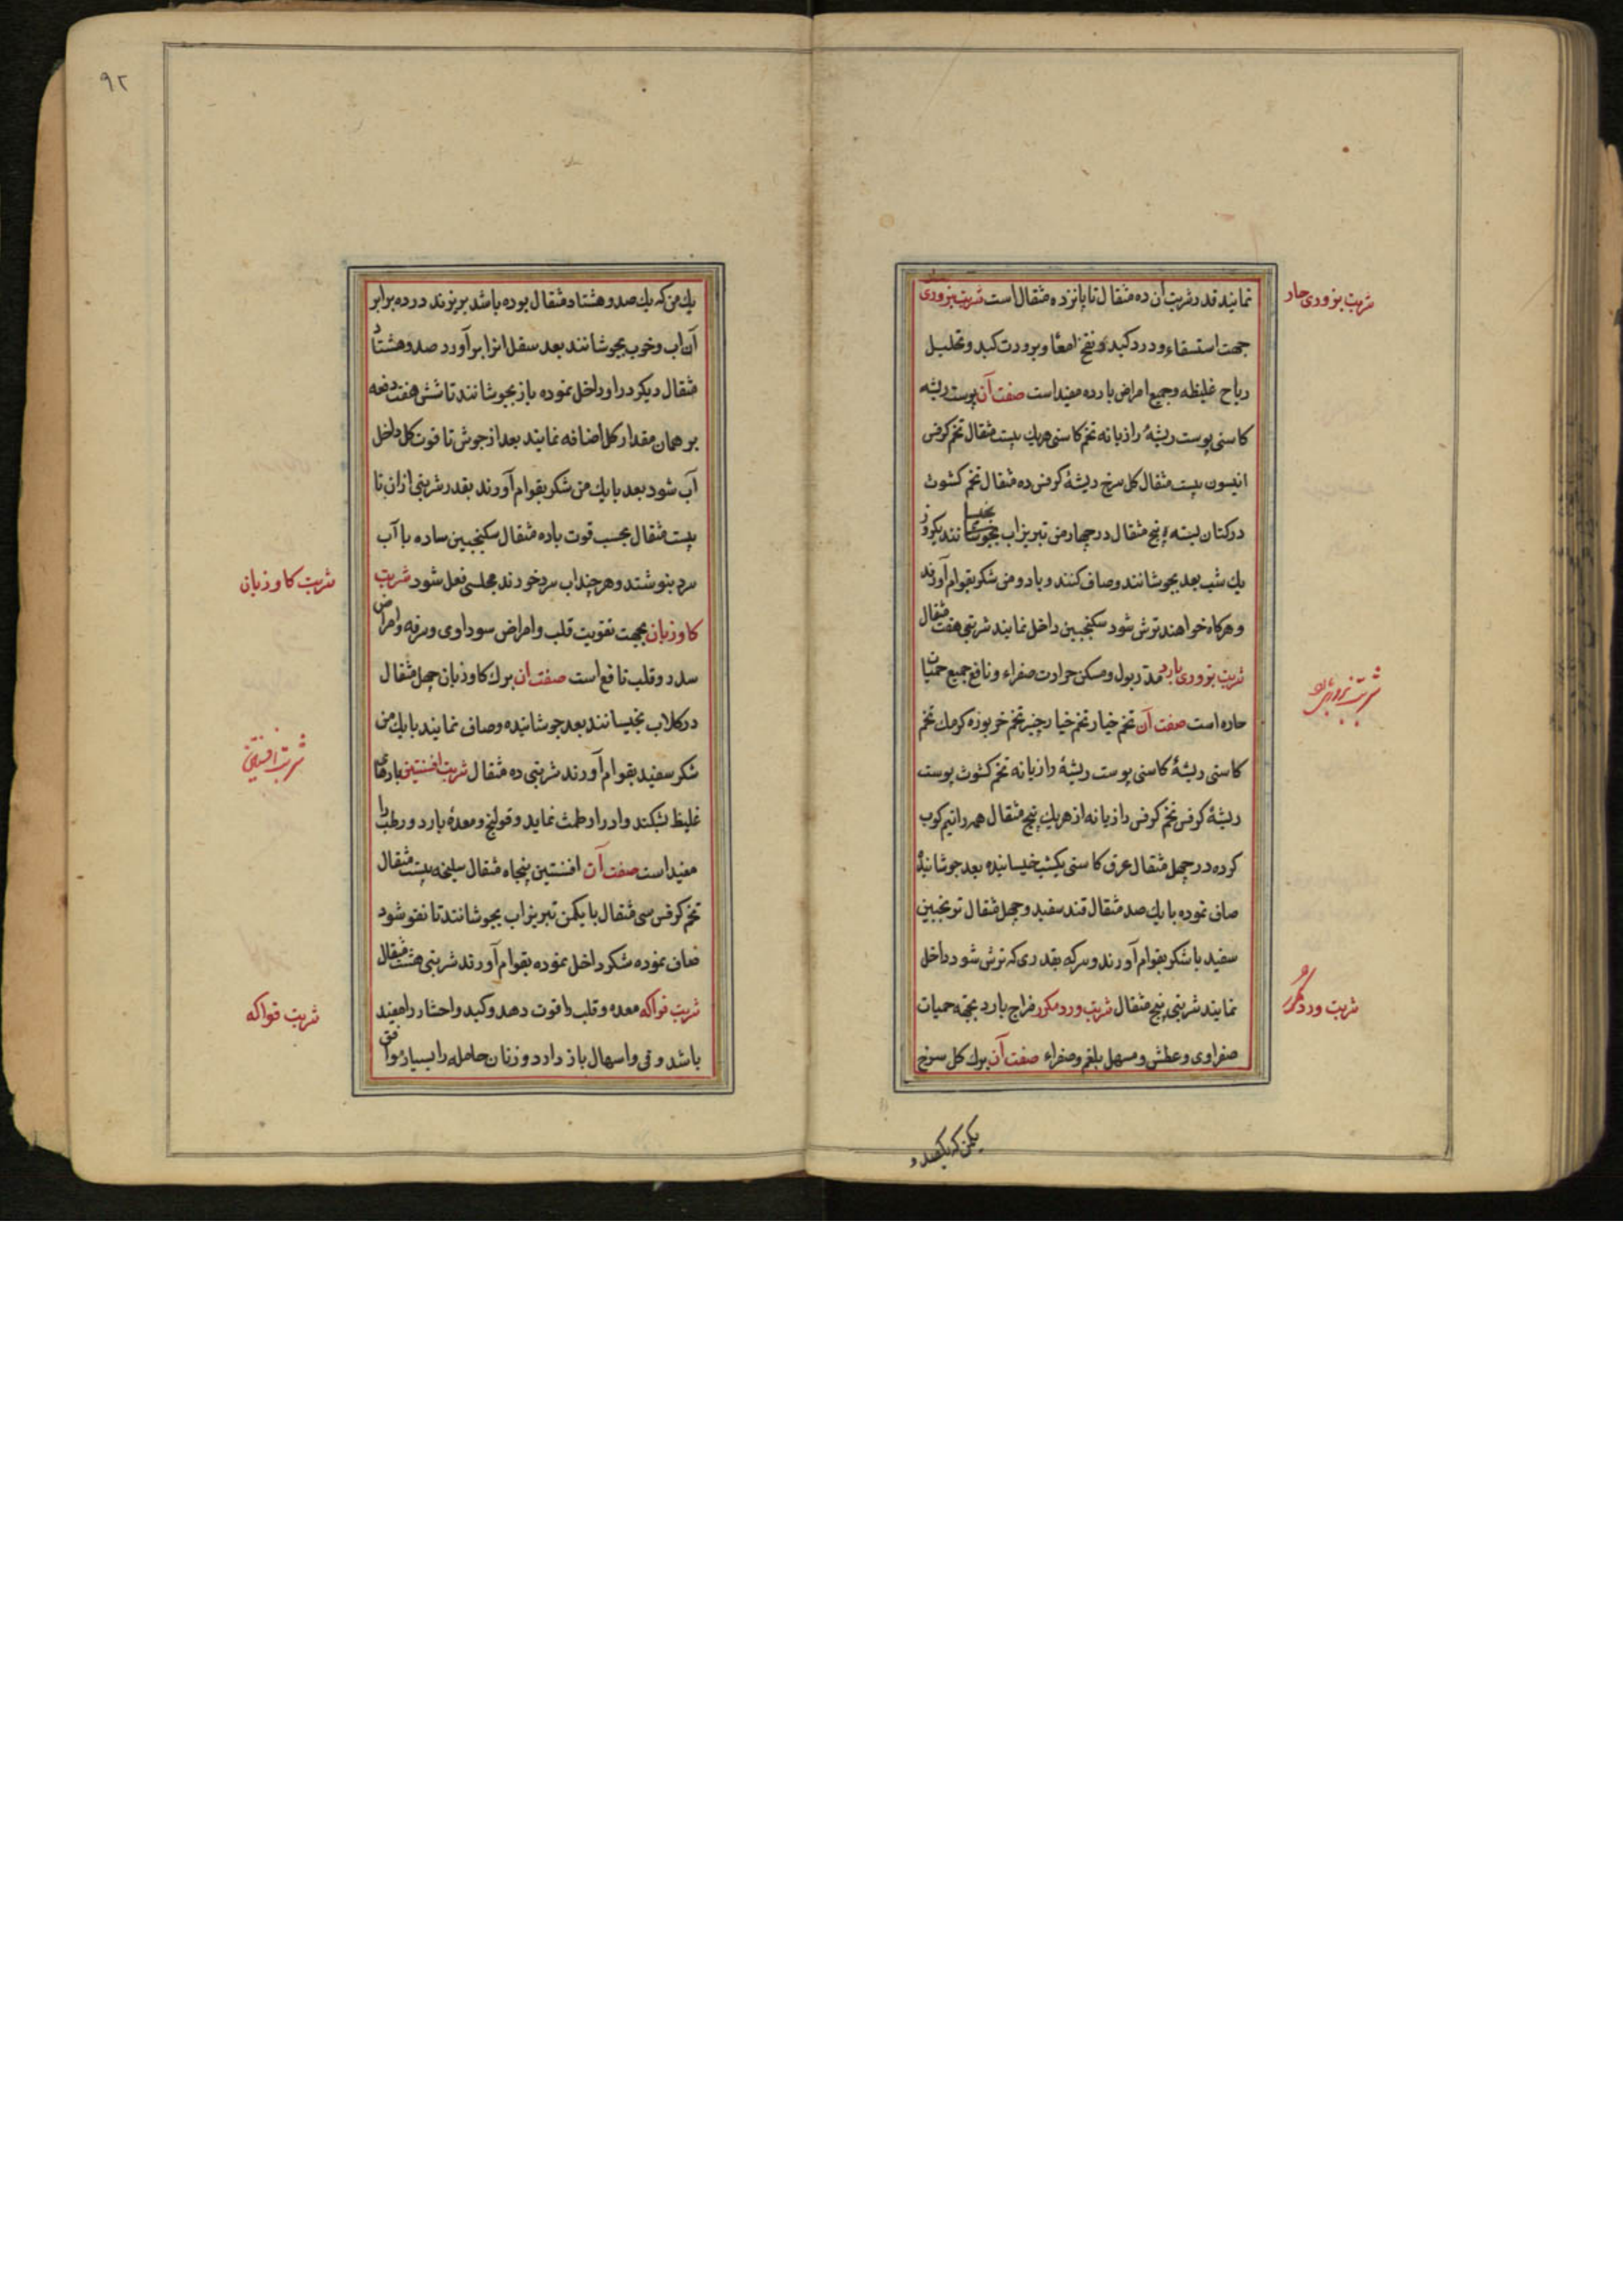 نمایند قدر شربت آن ده مثقال تا پانزده مثقال است شربت بزوری
شربت بزوری حار
جهت استسقاء و درد کبد و نفخ امعا و برودت کبد و تحلیل
ریاح غلیظه و جمیع امراض بارده مفید است صفت آن پوست ریشه
کاسنی پوست ریشهٔ رازیانه تخم کاسنی هریك بیست مثقال تخم کرفس
انیسون بیست مثقال کل سرخ ریشهٔ کرفس ده مثقال تخم کشوث
در کتان بسته پنج مثقال در چهار من تبریز اب بخیسانند یکروز
یك شب بعد بجوشانند و صاف کنند و با دو من شکر بقوام آورند
و هرکاه خواهند ترش شود سکنجبین داخل نمایند شربتی هفت مثقال
شربت بزوری بارد مدر بول و مسکن حرارت صفراء و نافع جمیع حمیات
شربت بزوری بارد
حاره است صفت آن تخم خیار تخم خیار چنبر تخم خربوزه کرمك تخم
کاسنی ریشهٔ کاسنی پوست ریشهٔ رازیانه تخم کشوث پوست
ریشهٔ کرفس تخم کرفس رازیانه از هریك پنج مثقال همه را نیم کوب
کرده در چهل مثقال عرق کاسنی یکشب خیسانیده بعد جوشانیده
صاف نموده با یك صد مثقال قند سفید و چهل مثقال ترنجبین
سفید با شکر بقوام آورند و سرکه بقدری که ترش شود داخل
نمایند شربتی پنج مثقال شربت ورد مکرر مزاج بارد بجهة حمیات
شربت ورد مکرر
صفراوی و عطش و مسهل بلغم و صفراء صفت آن برك کل سرخ
یکمن که یکصد و
۹۲
یك من که یك صد و هشتاد مثقال بوده باشد بریزند در ده برابر
آن اب و خوب بجوشانند بعد سفل انرا بر آورد صد و هشتاد
مثقال دیکر در او داخل نموده باز بجوشانند تا شش هفت دفعه
بر همان مقدار کل اضافه نمایند بعد از جوش تا قوت کل داخل
آب شود بعد با یك من شکر بقوام آورند بقدر شربتی ازان تا
بیست مثقال بحسب قوت با ده مثقال سکنجبین ساده با آب
سرد بنوشند و هر چند اب سرد خورند مجلسی فعل شود شربت
شربت کاوزبان
کاوزبان بجهت تقویت قلب و امراض سوداوی و سرفه و امراض
سدر و قلب نافع است صفت ان برك کاوزبان چهل مثقال
در کلاب بخیسانند بعد جوشانیده و صاف نمایند با یك من
شکر سفید بقوام آورند شربتی ده مثقال شربت افسنتین بادهای
شربت افسنتین
غلیظ بشکند و ادرار طمث نماید و قولنج و معدهٔ بارد و رطب را
مفید است صفت آن افسنتین پنجاه مثقال سلیخه بیست مثقال
تخم کرفس سی مثقال با یکمن تبریز اب بجوشانند تا نقو شود
صاف نموده شکر داخل نموده بقوام آورند شربتی هشت مثقال
شربت فواکه معده و قلب را قوت دهد و کبد و احشا را مفید
شربت فواکه
باشد و قی و اسهال باز دارد و زنان حامله را بسیار موافق